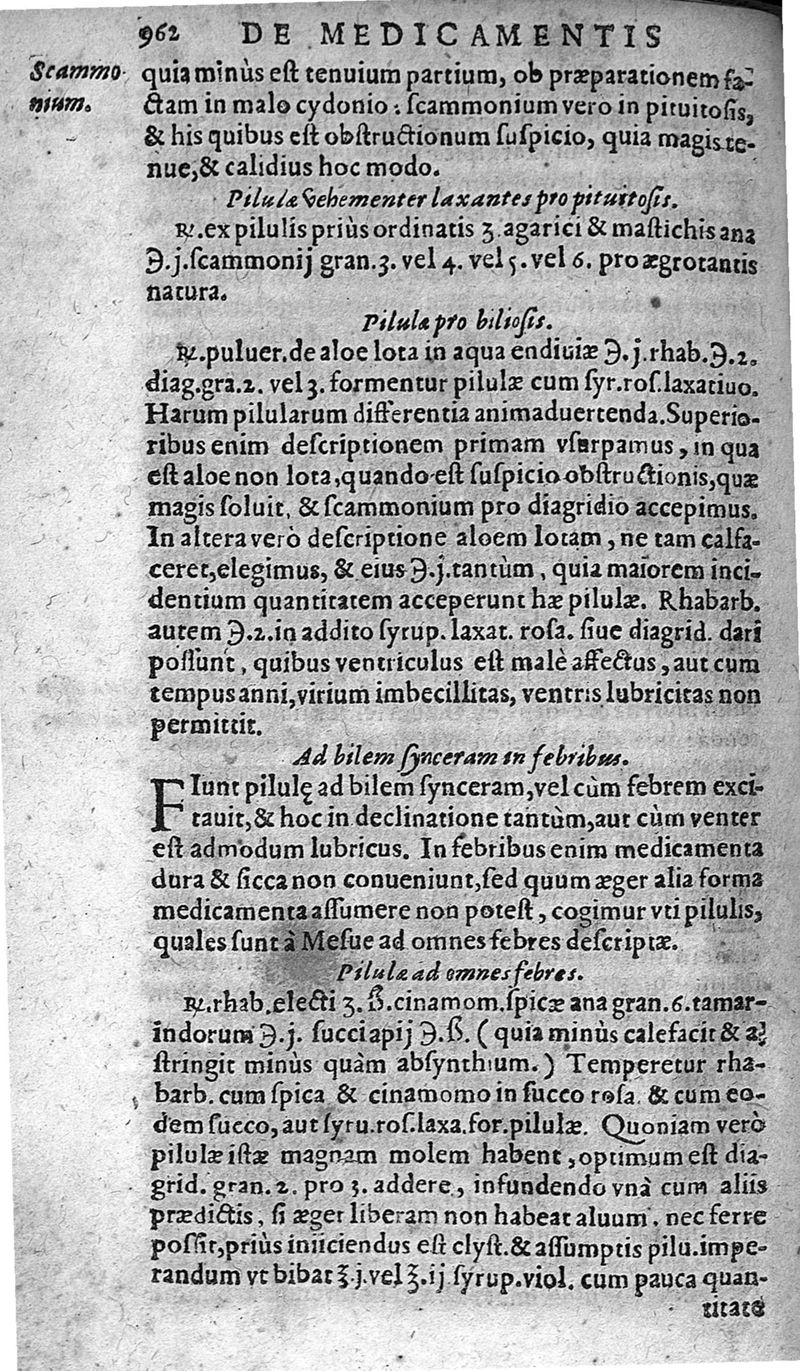 962 DE MEDICAMENTIS
Scammo-
nium.
quia minùs est tenuium partium, ob præparationem fa-
ctam in malo cydonio: scammonium vero in pituitosis,
& his quibus est obstructionum suspicio, quia magis te-
nue, & calidius hoc modo.
Pilulæ vehementer laxantes pro pituitosis.
℞. ex pilulis priùs ordinatis ʒ. agarici & mastichis ana
℈.j. scammonij gran.3. vel 4. vel 5. vel 6. pro ægrotantis
natura.
Pilulæ pro biliosis.
℞. puluer. de aloe lota in aqua endiuiæ ℈.j. rhab. ℈.2.
diag. gra.2. vel 3. formentur pilulæ cum syr. ros. laxatiuo.
Harum pilularum differentia animaduertenda. Superio-
ribus enim descriptionem primam vsurpamus, in qua
est aloe non lota, quando est suspicio obstructionis, quæ
magis soluit, & scammonium pro diagridio accepimus.
In altera verò descriptione aloem lotam, ne tam calfa-
ceret, elegimus, & eius ℈.j. tantùm, quia maiorem inci-
dentium quantitatem acceperunt hæ pilulæ. Rhabarb.
autem ℈.2. in addito syrup. laxat. rosa. siue diagrid. dari
possunt, quibus ventriculus est malè affectus, aut cum
tempus anni, virium imbecillitas, ventris lubricitas non
permittit.
Ad bilem synceram in febribus.
FIunt pilulę ad bilem synceram, vel cùm febrem exci-
tauit, & hoc in declinatione tantùm, aut cùm venter
est admodum lubricus. In febribus enim medicamenta
dura & sicca non conueniunt, sed quum æger alia forma
medicamenta assumere non potest, cogimur vti pilulis,
quales sunt à Mesue ad omnes febres descriptæ.
Pilulæ ad omnes febres.
℞. rhab. electi ʒ. ß. cinamom. spicæ ana gran.6. tamar-
indorum ℈.j. succi apij ℈.ß. (quia minùs calefacit & a-
stringit minùs quàm absynthium.) Temperetur rha-
barb. cum spica & cinamomo in succo rosa. & cum eo-
dem succo, aut syru. ros. laxa. for. pilulæ. Quoniam verò
pilulæ istæ magnam molem habent, optimum est dia-
grid. gran.2. pro 3. addere, infundendo vnà cum aliis
prædictis, si æger liberam non habeat aluum. nec ferre
possit, priùs iniiciendus est clyst. & assumptis pilu. impe-
randum vt bibat ℥.j. vel ℥.ij syrup. viol. cum pauca quan-
titate